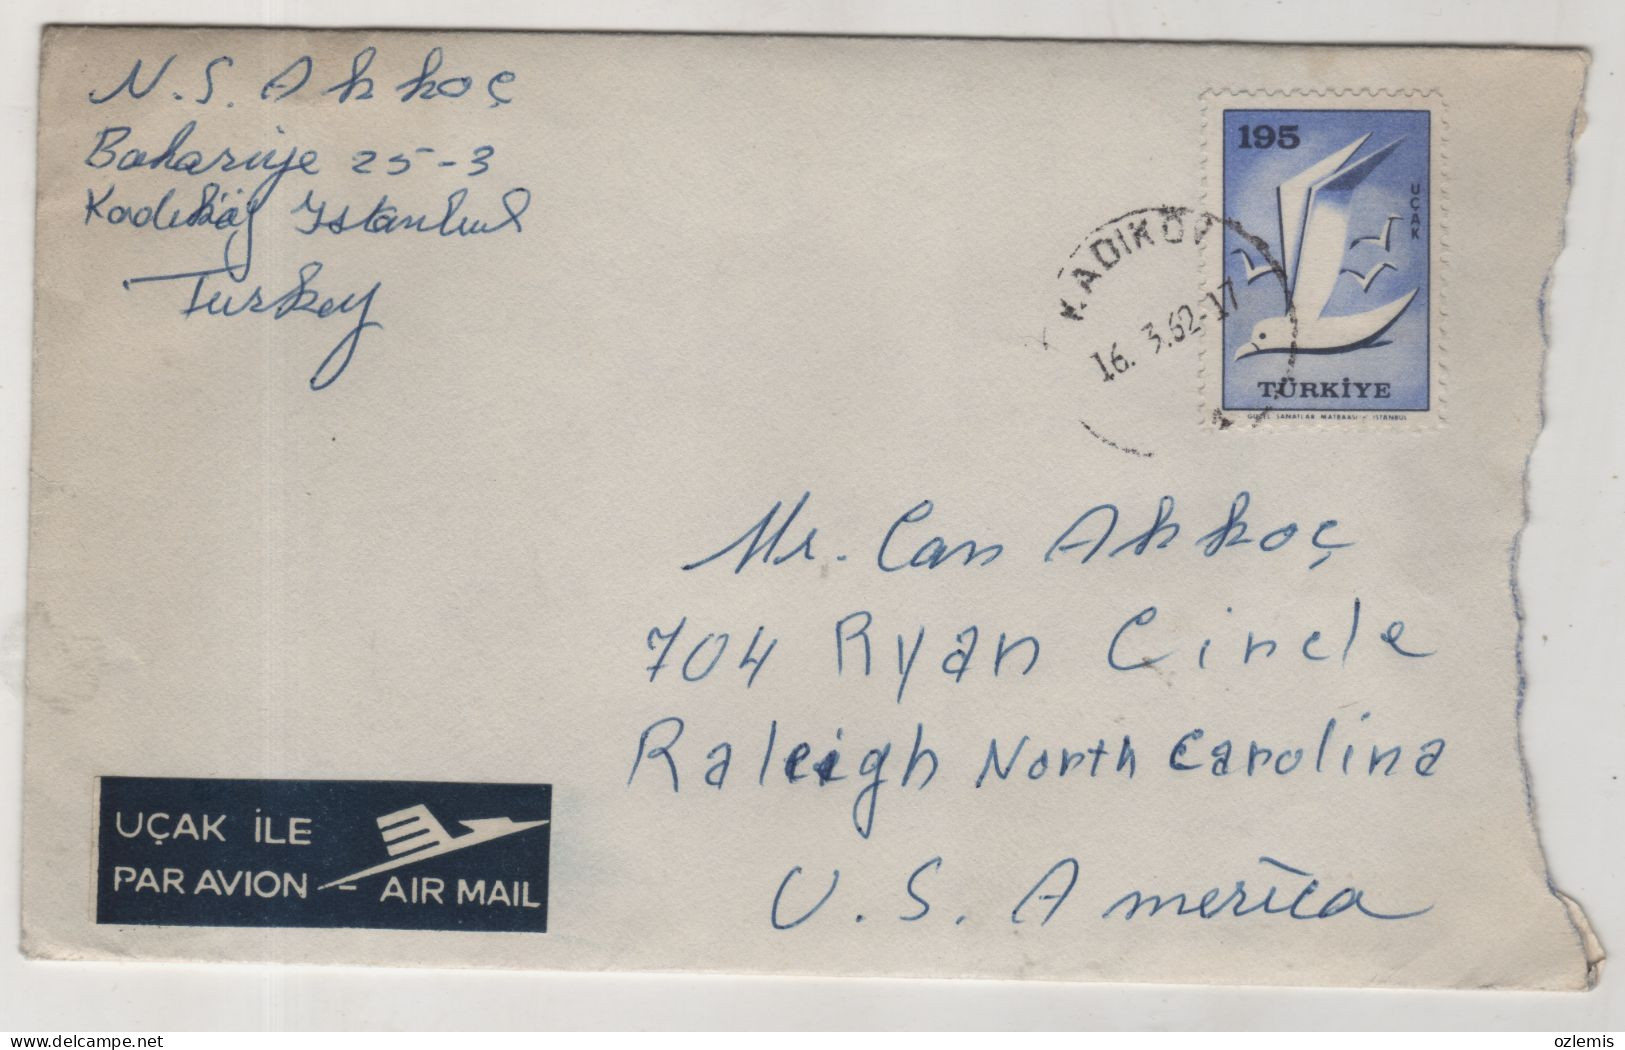 N. S. Akkoç
Bahariye 25-3
Kadıköy Istanbul
Turkey
195
UÇAK
TÜRKİYE
GÜZEL SANATLAR MATBAASI - İSTANBUL
KADIKÖY
16. 3.62-17
Mr. Can Akkoç
704 Ryan Circle
Raleigh North Carolina
U. S. America
UÇAK İLE
PAR AVION - AIR MAIL
ozlemis